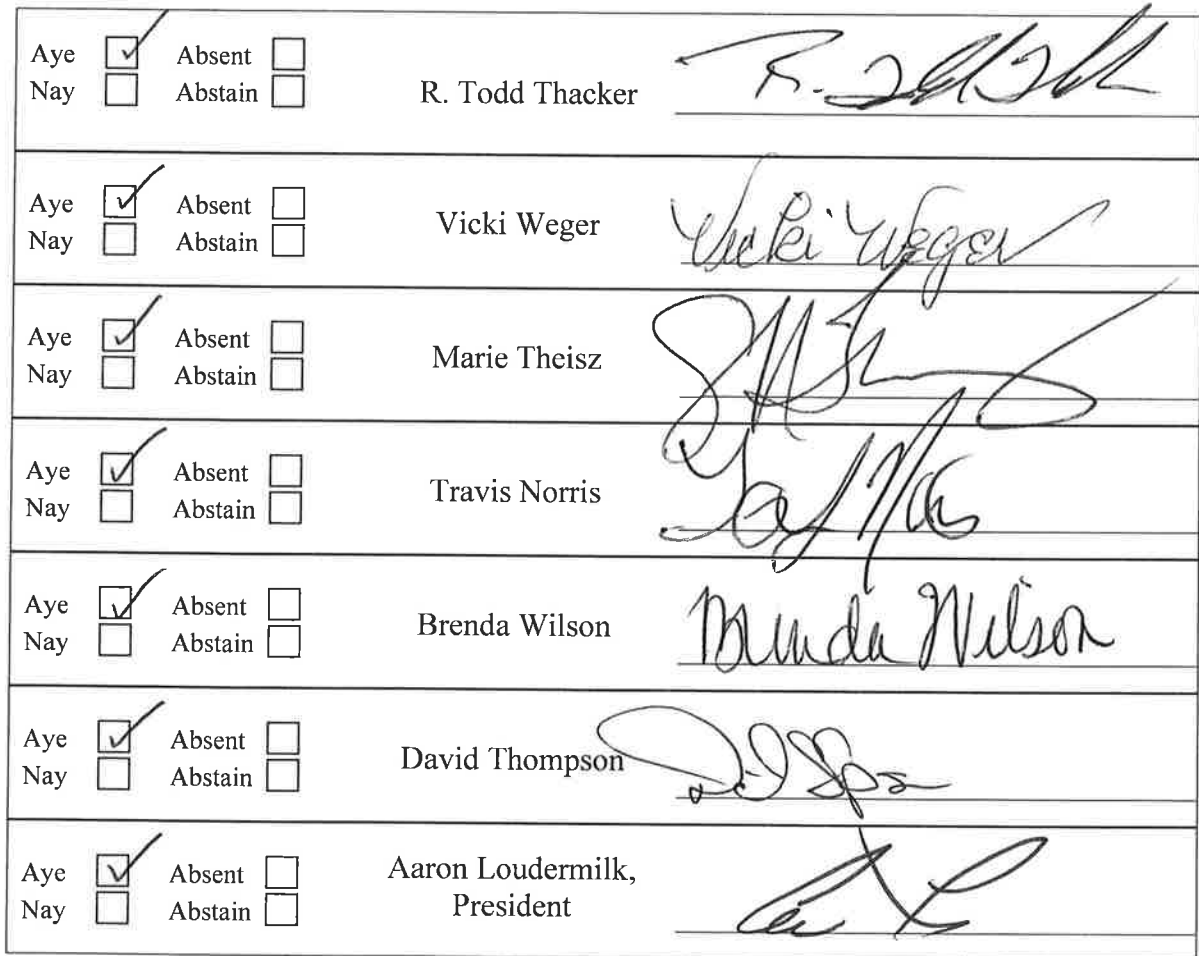 Aye ☑ Absent ☐
Nay ☐ Abstain ☐
R. Todd Thacker
Aye ☑ Absent ☐
Nay ☐ Abstain ☐
Vicki Weger Vicki Weger
Aye ☑ Absent ☐
Nay ☐ Abstain ☐
Marie Theisz
Aye ☑ Absent ☐
Nay ☐ Abstain ☐
Travis Norris
Aye ☑ Absent ☐
Nay ☐ Abstain ☐
Brenda Wilson Brenda Wilson
Aye ☑ Absent ☐
Nay ☐ Abstain ☐
David Thompson
Aye ☑ Absent ☐
Nay ☐ Abstain ☐
Aaron Loudermilk,
President